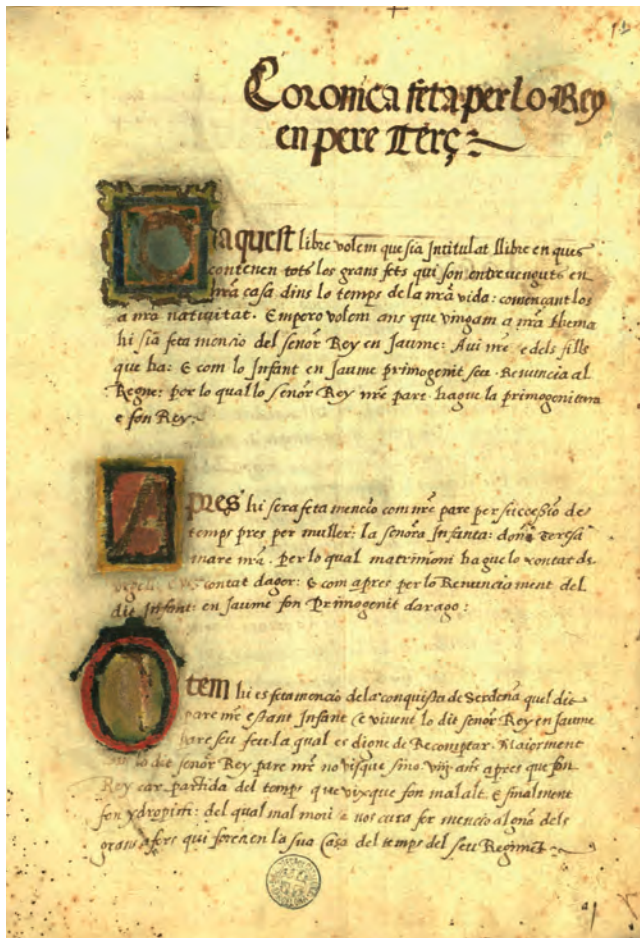 Coronica feta per lo Rey
en pere Terç
aquest libre volem que sia Jntitulat llibre en ques
contenen tots los grans fets qui son entreuenguts en
nr̃a casa dins lo temps de la nr̃a vida: començant los
a nr̃a natiuitat. Empero volem ans que vingam a nr̃a thema
hi sia feta mencio del senõr Rey en Jaume: Aui nr̃e e dels fills
que ha: E com lo Infant en Jaume primogenit seu Renuncia al
Regne: per lo qual lo senõr Rey nr̃e pare hague la primogenitura
e fon Rey
Apres hi sera feta mencio com nr̃e pare per successio de
temps pres per muller: la senõra Infanta: dona Teresa
mare nr̃a. per lo qual matrimoni hague lo contat de
vrgell e viscontat dager: E com apres per lo Renunciament del
dit Infant: en Jaume fon Primogenit darago:
Item hi es feta mencio de la conquista de Serdeña quel dit
pare nr̃e estant Infant e viuent lo dit senõr Rey en Jaume
pare seu feu. la qual es digne de Recomptar. Maiorment
com lo dit senõr Rey pare nr̃e no visque sino viij ans apres que fon
Rey car partida del temps que vixque fon malalt. E finalment
fon ydropich: del qual mal mori e nos cura fer mencio alguna dels
grans afers qui foren en la sua Casa del temps del seu Regiment